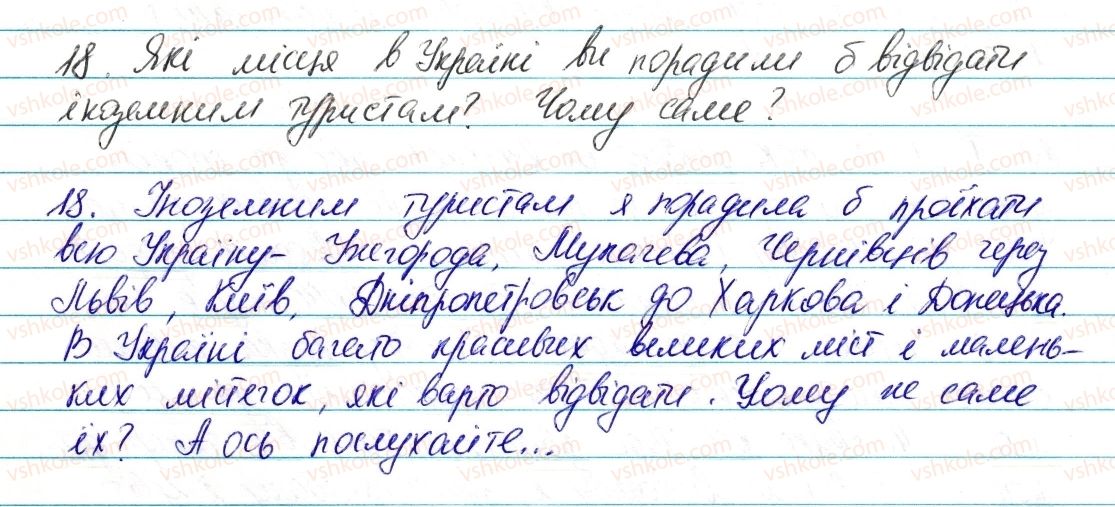 18. Які місця в Україні ви порадили б відвідати
іноземним туристам? Чому саме?
18. Іноземним туристам я порадила б проїхати
всю Україну- Ужгорода, Мукачева, Чернівців через
Львів, Київ, Дніпропетровськ до Харкова і Донецька.
В Україні багато красивых великих міст і малень-
ких містечок, які варто відвідати. Чому не саме
їх? А ось послухайте...